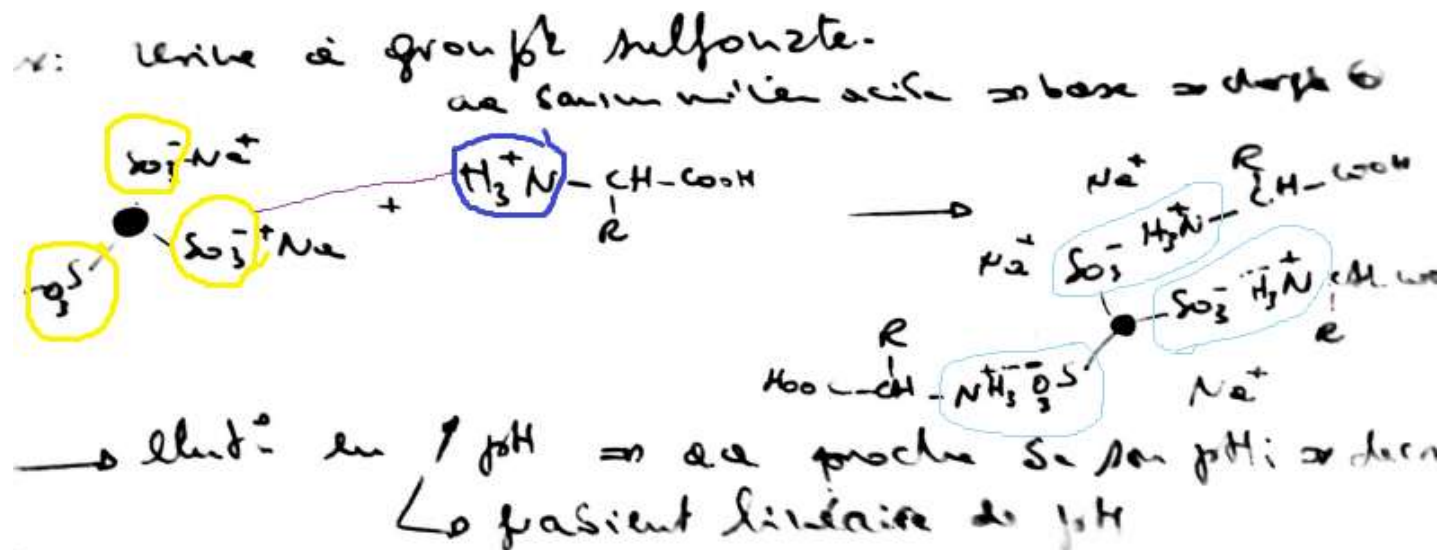 résine à groupt sulfonate.
aa dans un milieu acide => base => charge ⊕
SO3- Na+
H3+N - CH - COOH
R
+
SO3- +Na
-O3S
Na+
R
CH - COOH
Na+
SO3- H3+N
SO3- H3+N
R
R
HOOC - CH - N+H3 -O3S
Na+
→ élut° en ↑ pH => aa proche de son pHi =>
↳ gradient linéaire de pH